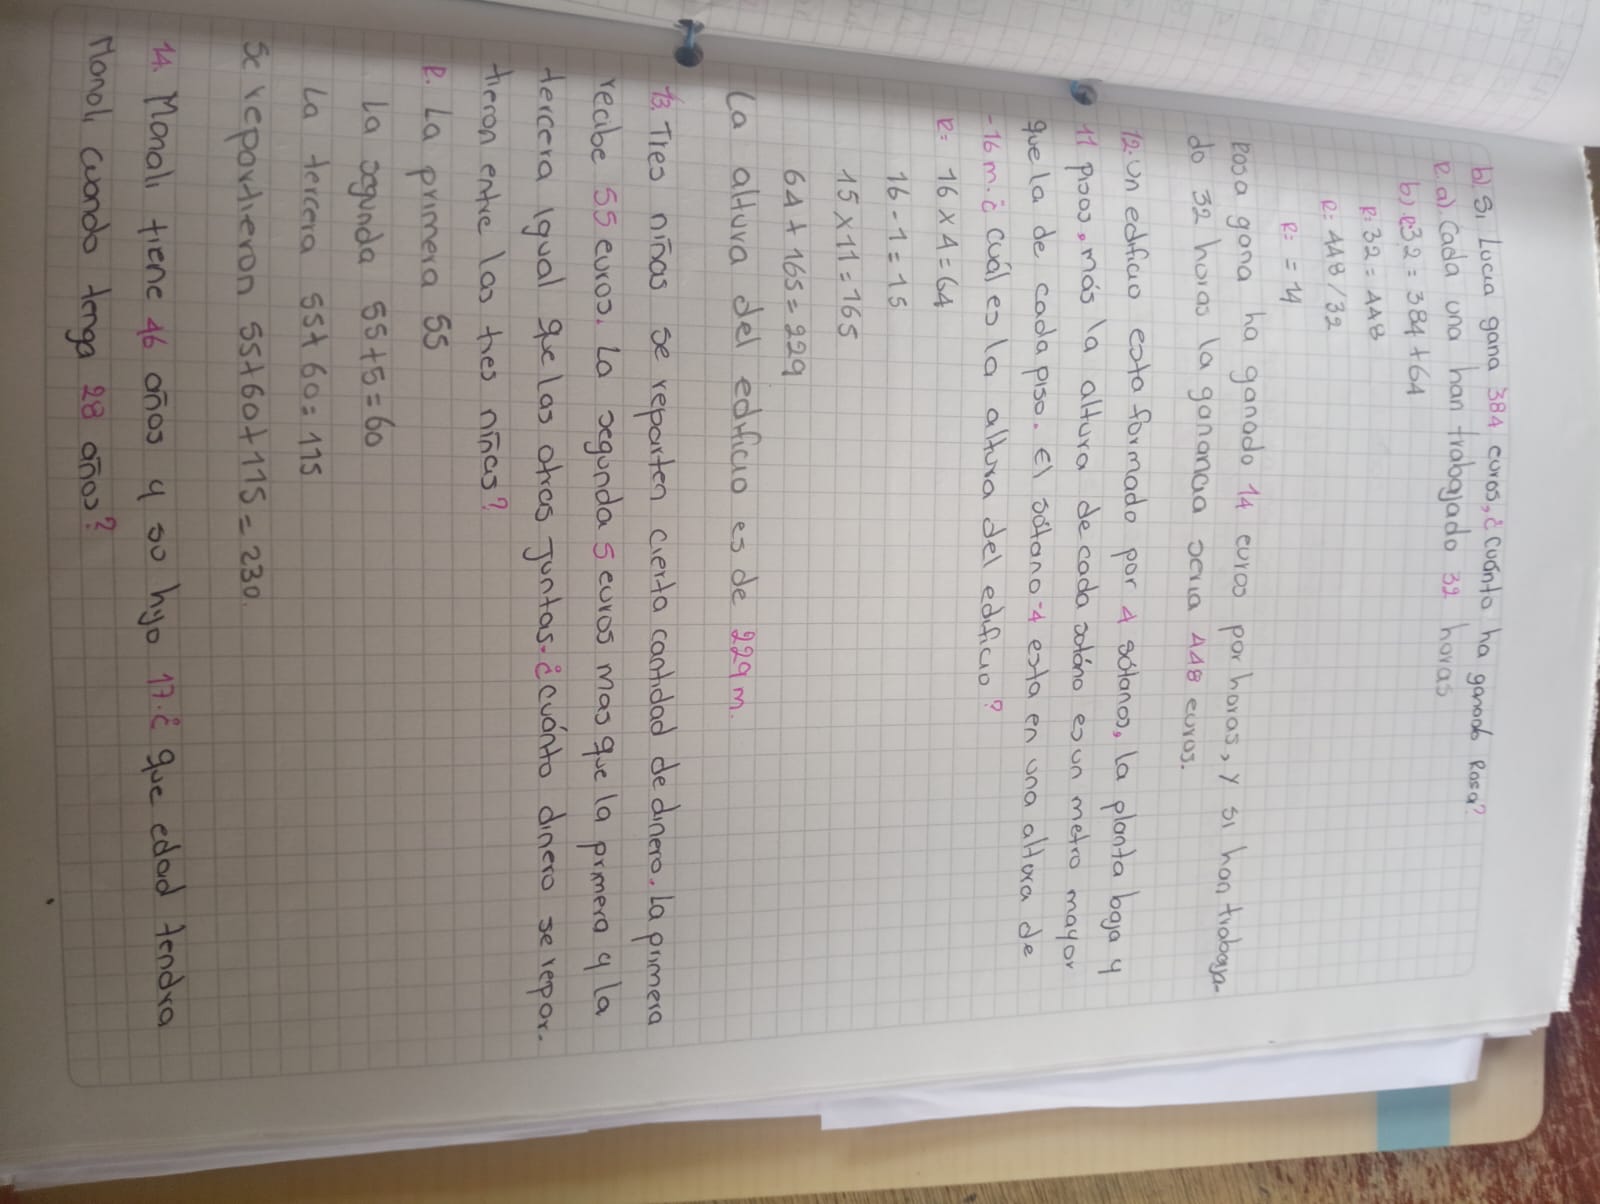 b). Si Lucia gana 384 euros, ¿ Cuánto ha ganado Rosa?
R. a). Cada una han trabajado 32 horas
b) R:32 = 384 + 64
R = 32 = 448
R = 448 / 32
R = = 14
Rosa gana ha ganado 14 euros por horas, y si han trabaja-
do 32 horas la ganancia seria 448 euros.
12. un edificio esta formado por 4 sótanos, la planta baja y
11 pisos, más la altura de cada sotáno es un metro mayor
que la de cada piso. El sótano -4 esta en una altura de
-16 m. ¿ Cuál es la altura del edificio?
R= 16 x 4 = 64
16 - 1 = 15
15 x 11 = 165
64 + 165 = 229
La altura del edificio es de 229 m.
13. Tres niñas se reparten cierta cantidad de dinero. La primera
recibe 55 euros. La segunda 5 euros mas que la primera y la
tercera igual que las otras juntas. ¿ cuánto dinero se repar-
tieron entre las tres niñas?
R. La primera 55
La segunda 55 + 5 = 60
La tercera 55 + 60 = 115
Se repartieron 55 + 60 + 115 = 230.
14. Manoli tiene 46 años y so hijo 17. ¿ que edad tendra
Manoli cuando tenga 28 años?